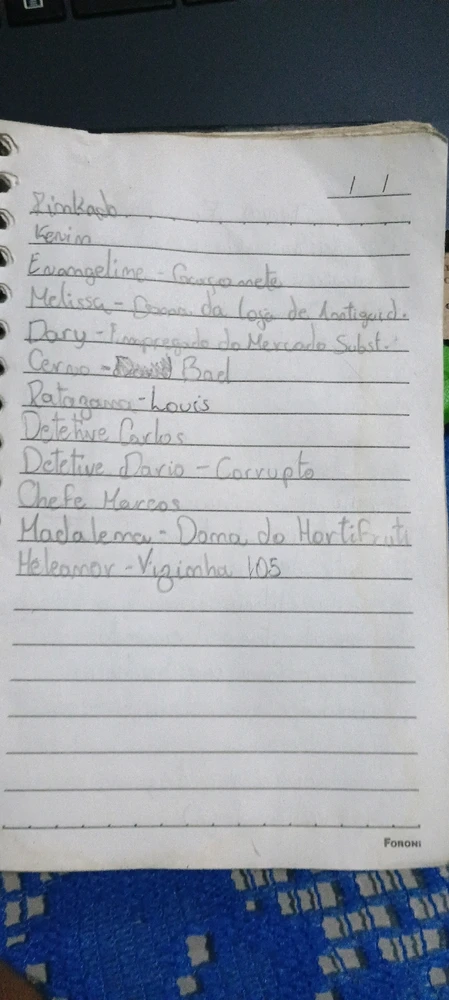 / /
Kevin
Evangeline - Caçaçamete
Melissa - Dona da Loja de Antiguid.
Dary - Empregado do Mercado Subst.
Cervo - Bael
Ratazana - Louis
Detetive Carlos
Detetive Dario - Corrupto
Chefe Marcos
Madalena - Dona do Hortifruti
Heleanor - Vizinha 105
FORONI